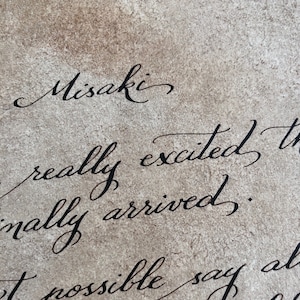 Misaki
really excited th
inally arrived.
t possible say al